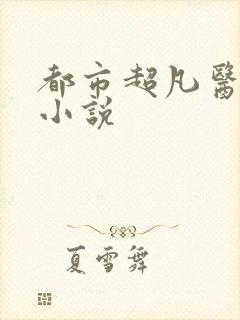 都市超凡醫
小說
夏雪舞